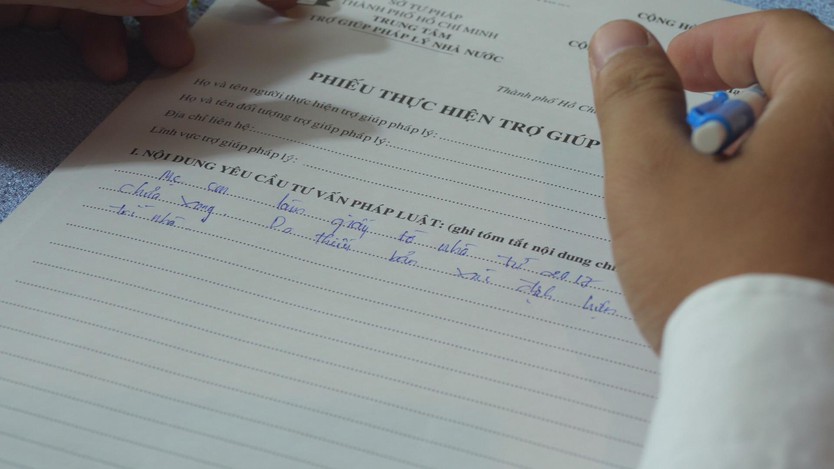 SỞ TƯ PHÁP
THÀNH PHỐ HỒ CHÍ MINH
TRUNG TÂM
TRỢ GIÚP PHÁP LÝ NHÀ NƯỚC
CỘNG HÒ
Thành phố Hồ Chí
PHIẾU THỰC HIỆN TRỢ GIÚP
Họ và tên người thực hiện trợ giúp pháp lý:
Họ và tên đối tượng trợ giúp pháp lý:
Địa chỉ liên hệ:
Lĩnh vực trợ giúp pháp lý:
I. NỘI DUNG YÊU CẦU TƯ VẤN PHÁP LUẬT: (ghi tóm tắt nội dung chí
Mẹ con làm giấy tờ nhà từ 2017
chưa xong. Do thiếu bản xác định hiện
trả nhà